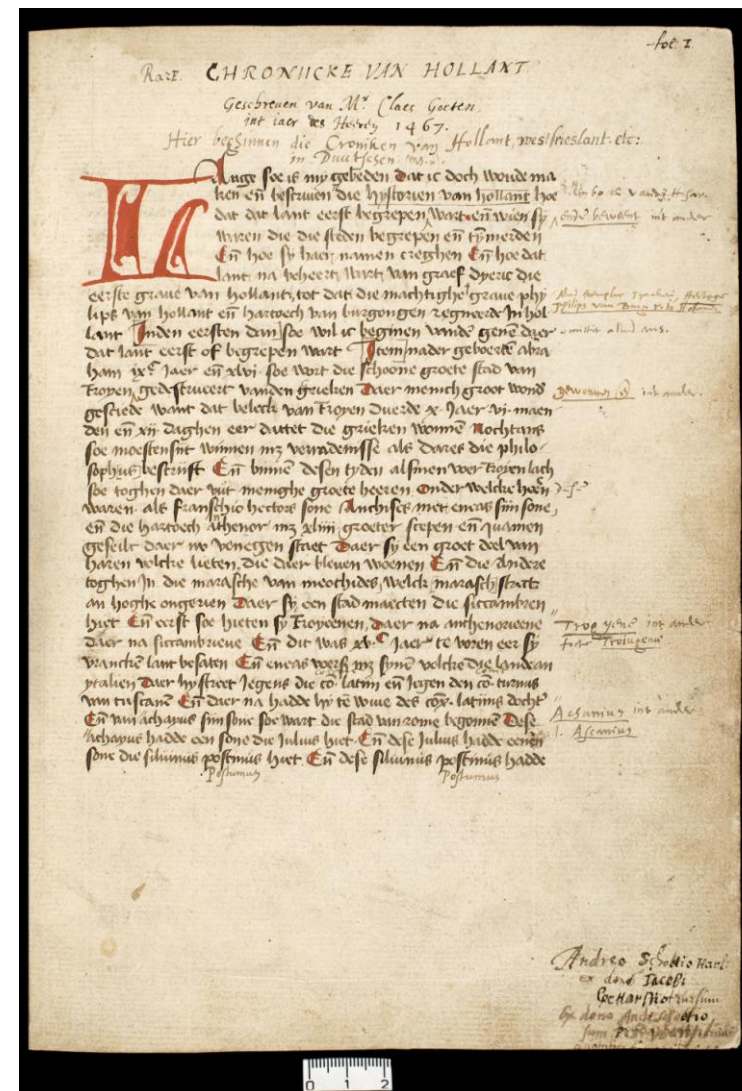 fol: 1
RarI. CHRONIICKE VAN HOLLANT
Geschreven van Mr. Claes Goeten,
int iaer des Heeren 1467.
Hier beghinnen die Croniken van Hollant, westfrieslant. etc:
in Duutschen
LAnge soe is my gebeden dat ic doch woude ma
ken en̄ bescriuen die hystorien van hollant hoe
dat dat lant eerst begrepen wart en̄ wien sy
ende bewoent int ander
waren die die steden begrepen en̄ tymerden
En̄ hoe sy haer namen creghen En̄ hoe dat
lant na beheert wart van graef dyeric die
eerste graue van hollant, tot dat die machtighe graue phy
lips van hollant en̄ hartoech van burgongen regneerde In hol
lant Inden eersten dan soe wil ic beginnen vanden genen daer
omittit aliud ms.
dat lant eerst of begrepen wart Item nader geboerte abra
ham ixc Jaer en̄ xlvi soe wort die schoone groete stad van
troyen gedestrueert vanden grieken Daer menich groot wond
gewonnen int ander.
gesciede want dat belech van troyen duerde x Jaer vi maen
den en̄ xii daghen eer dattet die grieken wonnen Nochtans
soe moestensijt winnen mz verradenisse als Dares die philo
sophus bescrijft En̄ binnen desen tyden als men voer troyen lach
soe toghen daer vut menighe groete heeren Onder welcke heeren
waren als Franschio hectors sone Anchises met eneas sijn sone,
en̄ die hartoech Athenor mz xliiij groeter scepen en̄ quamen
geseilt daer nv venegen staet Daer sy een groet deel van
haren volcke lieten, die daer bleuen woenen En̄ die Andere
toghen In die marasche van meothides, welck marasch staet
an hoghe ongerien Daer sy een stad maecten die siccambren
hiet En̄ eerst soe hieten sy troyeenen, Daer na anthenoriene
int ander
Troiugenae
Daer na siccambriene En̄ dit was xvc Jaer te voren eer sy
vrancken lant besaten En̄ eneas voerss mz synen volcke die landean
ytalien Daer hy street Jegens die co. latijn en̄ Jegen den co. turnus
van tuscanen En̄ daer na hadde hy te wiue des co. latijns dochter
En̄ van achayus sijn sone soe wart die stad van rome begonnen Dese
Achanius int ander
achayus hadde een sone die Julius hiet En̄ dese Julius hadde eenen
l. Ascanius
sone die siluinus postinus hiet En̄ dese siluinus postinus hadde
Postumus Postumus
Andreo Schottio Harl:
ex dono Iacobi
rursum
Ex dono And. Schottio
sum
0 1 2